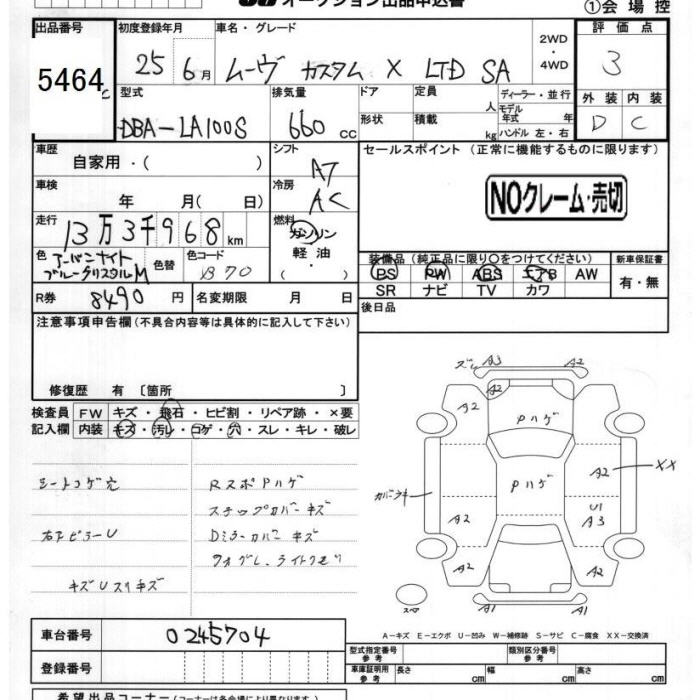 オークション出品申込書
①会場控
出品番号
5464
初度登録年月
25 6月
車名・グレード
ムーヴ カスタム X LTD SA
2WD
・
4WD
評価点
3
外装 内装
D C
型式
DBA-LA100S
排気量
660 cc
ドア
形状
定員
人
積載
kg
ディーラー・並行
モデル
年式 年
ハンドル 左・右
車歴
自家用・( )
シフト
AT
セールスポイント (正常に機能するものに限ります)
NOクレーム・売切
車検
年 月( 日)
冷房
AC
走行
13万3千968km
燃料
ガソリン
軽油
・
( )
色
アーバンナイト
ブルークリスタルM
色替
色コード
B70
装備品(純正品に限り○をつけてください)
新車保証書
PS PW ABS エアB AW
有・無
SR ナビ TV カワ
R券
8490円
名変期限 月 日
後日品
注意事項申告欄(不具合内容等は具体的に記入して下さい)
修復歴 有〔箇所 〕
検査員
記入欄
FW キズ・飛石・ヒビ割・リペア跡・×要
内装 キズ・汚レ・コゲ・穴・スレ・キレ・破レ
シートコゲ穴
右Aピラー U
キズUスリキズ
RスポPハゲ
ステップカバーキズ
Dミラーカバーキズ
ライトクモリ
ズレ A3 A2
A2 A2
Pハゲ
Pハゲ
A2 XX
U1
A3
A2
A2 A2
A1 A1
スペア
A-キズ E-エクボ U-凹み W-補修跡 S-サビ C-腐食 XX-交換済
車台番号
0245704
登録番号
型式指定番号
参考
類別区分番号
参考
車庫証明用
参考
長さ cm 幅 cm 高さ cm
希望出品コーナー(コーナーは各会場により異なります)